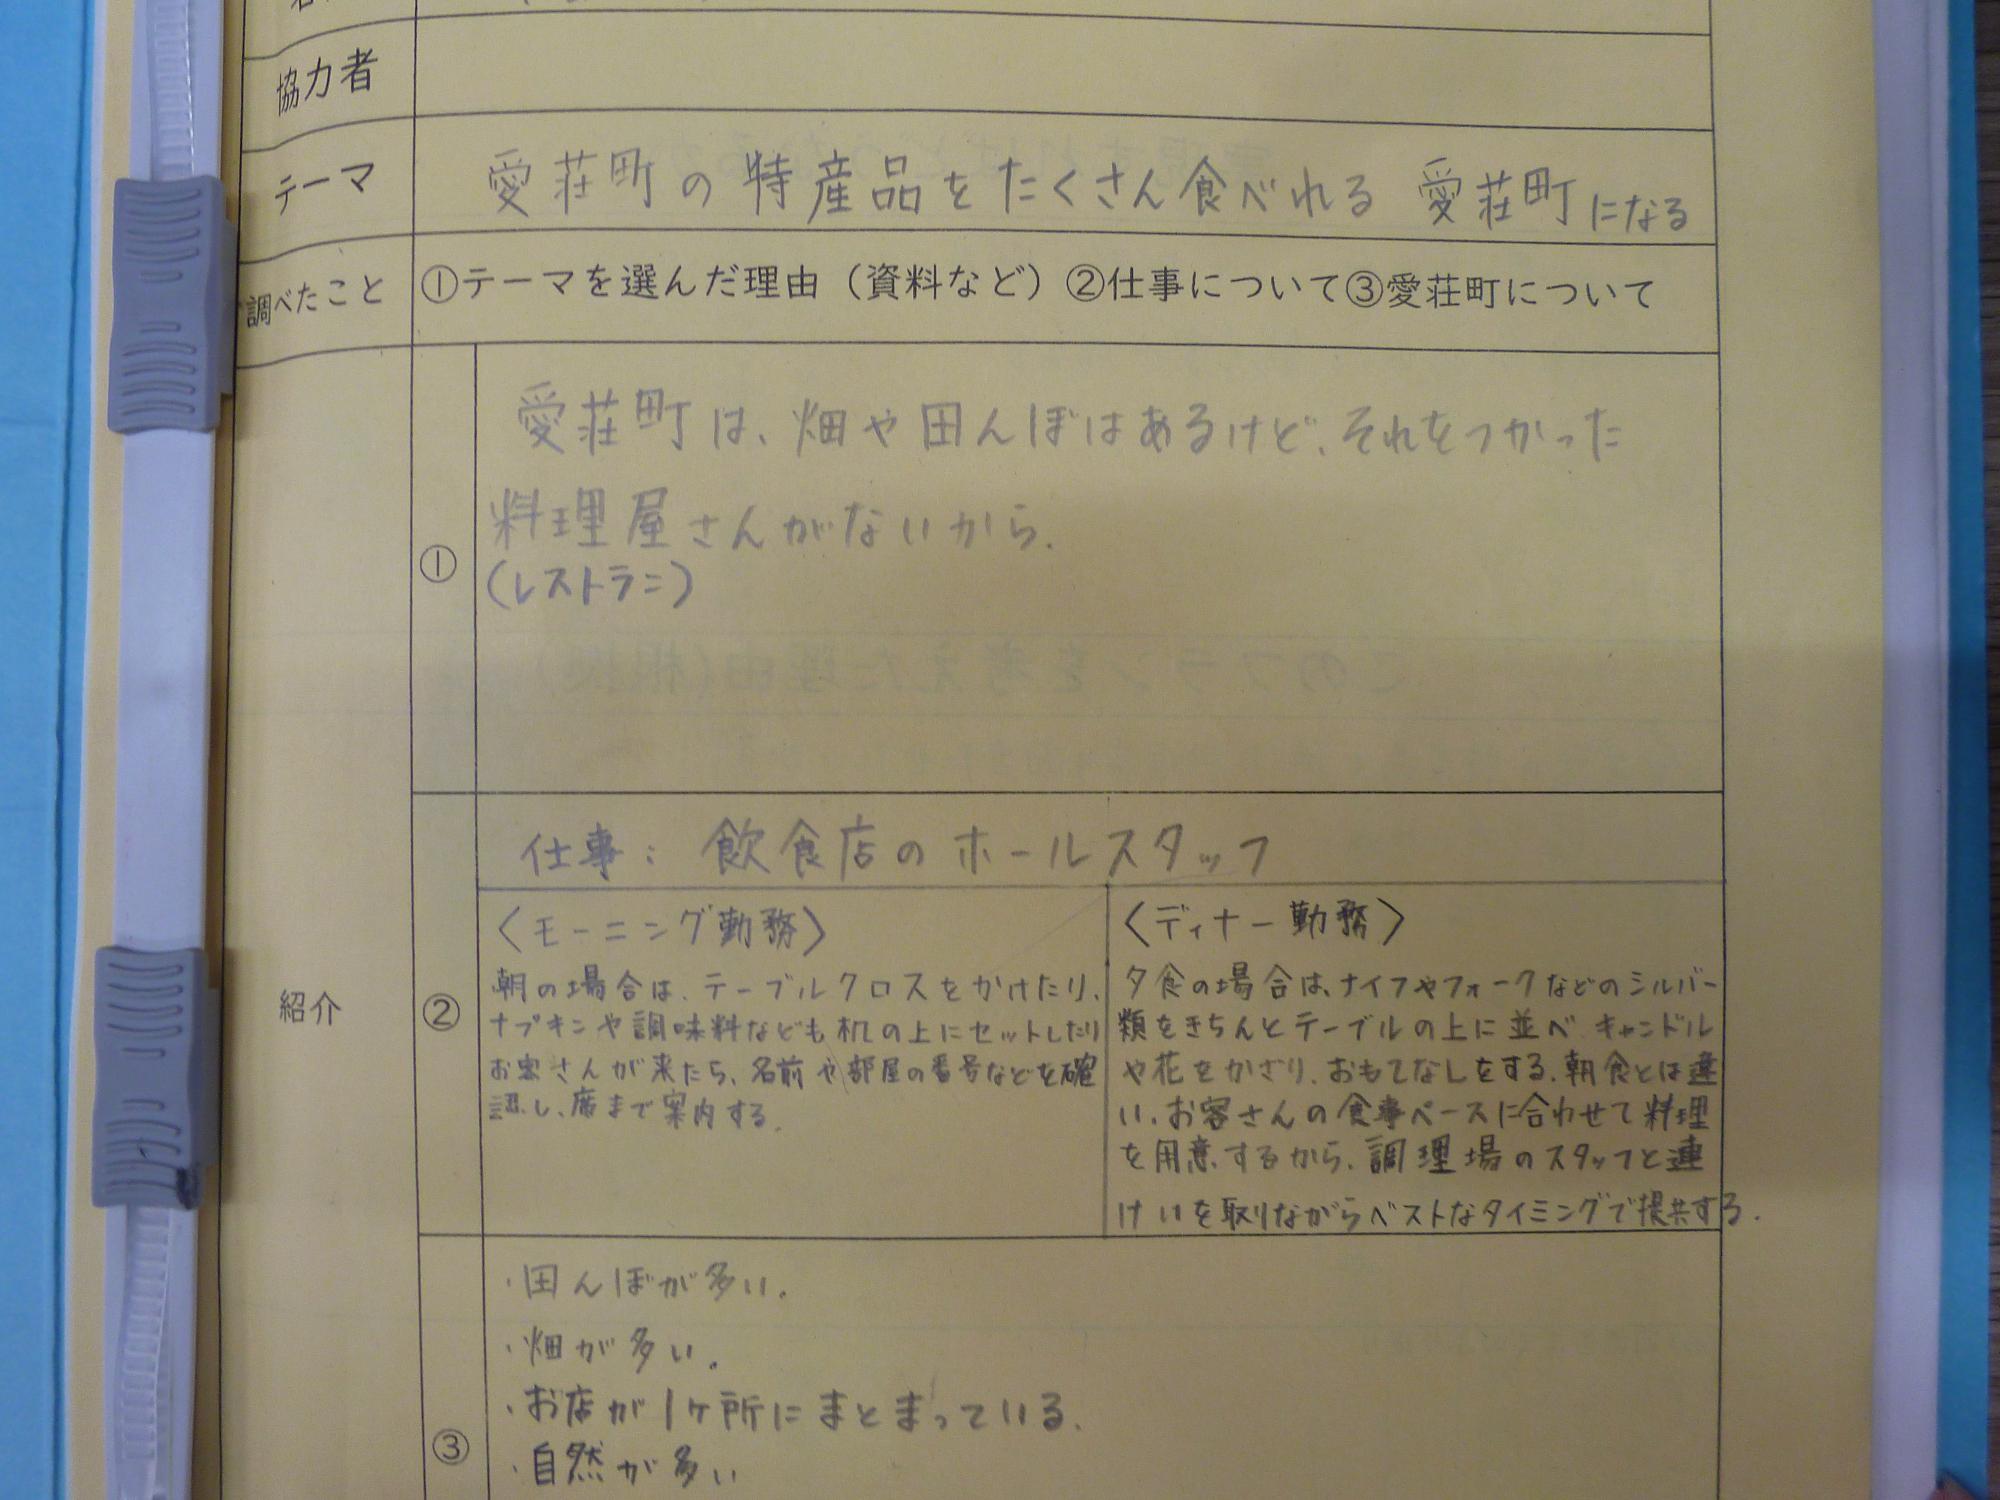 協力者
テーマ 愛荘町の特産品をたくさん食べれる 愛荘町になる
調べたこと ①テーマを選んだ理由（資料など）②仕事について③愛荘町について
紹介
①
愛荘町は、畑や田んぼはあるけど、それをつかった
料理屋さんがないから.
(レストラン)
②
仕事: 飲食店のホールスタッフ
〈モーニング勤務〉
朝の場合は、テーブルクロスをかけたり、
ナプキンや調味料なども机の上にセットしたり
お客さんが来たら、名前や部屋の番号などを確
認し、席まで案内する.
〈ディナー勤務〉
夕食の場合は、ナイフやフォークなどのシルバー
類をきちんとテーブルの上に並べ キャンドル
や花をかざり、おもてなしをする、朝食とは違
い、お客さんの食事ペースに合わせて料理
を用意するから、調理場のスタッフと連
けいを取りながらベストなタイミングで提供する.
③
・田んぼが多い.
・畑が多い.
・お店が1ヶ所にまとまっている.
・自然が多い